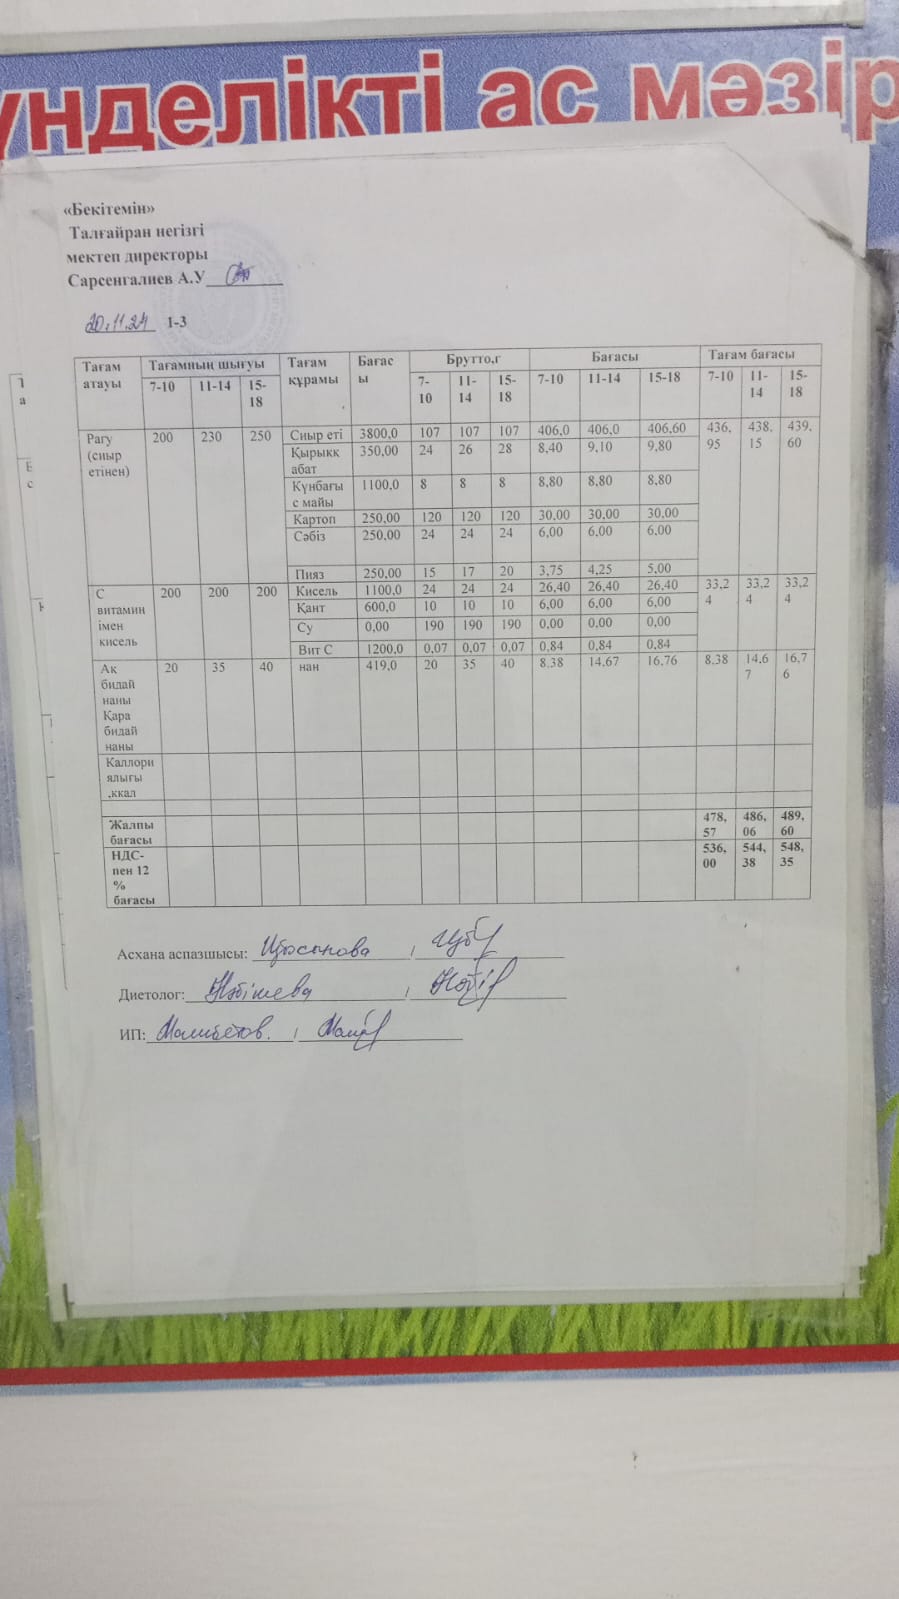 үнделікті ас мәзір
«Бекітемін»
Талғайран негізгі
мектеп директоры
Сарсенгалиев А.У
20.11.24 1-3
Тағам атауы Тағамның шығуы Тағам құрамы Бағасы Брутто,г Бағасы Тағам бағасы
7-10 11-14 15-18 7-10 11-14 15-18 7-10 11-14 15-18 7-10 11-14 15-18
Рагу (сиыр етінен) 200 230 250 Сиыр еті 3800,0 107 107 107 406,0 406,0 406,60 436,95 438,15 439,60
Қырыққабат 350,00 24 26 28 8,40 9,10 9,80
Күнбағыс майы 1100,0 8 8 8 8,80 8,80 8,80
Картоп 250,00 120 120 120 30,00 30,00 30,00
Сәбіз 250,00 24 24 24 6,00 6,00 6,00
Пияз 250,00 15 17 20 3,75 4,25 5,00
С витамин імен кисель 200 200 200 Кисель 1100,0 24 24 24 26,40 26,40 26,40 33,24 33,24 33,24
Қант 600,0 10 10 10 6,00 6,00 6,00
Су 0,00 190 190 190 0,00 0,00 0,00
Вит С 1200,0 0,07 0,07 0,07 0,84 0,84 0,84
Ақ бидай наны Қара бидай наны 20 35 40 нан 419,0 20 35 40 8,38 14,67 16,76 8,38 14,67 16,76
Каллориялығы ,ккал
Жалпы бағасы 478,57 486,06 489,60
НДС-пен 12 % бағасы 536,00 544,38 548,35
Асхана аспазшысы:
Диетолог:
ИП: